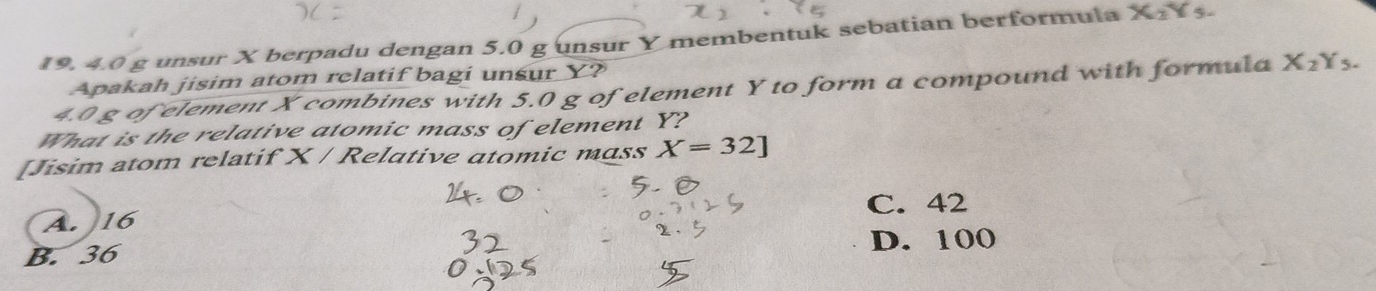 x =
19. 4.0 g unsur X berpadu dengan 5.0 g unsur Y membentuk sebatian berformula X₂Y₅.
Apakah jisim atom relatif bagi unsur Y?
4.0 g of element X combines with 5.0 g of element Y to form a compound with formula X₂Y₅.
What is the relative atomic mass of element Y?
[Jisim atom relatif X / Relative atomic mass X = 32]
A. 16
B. 36
C. 42
D. 100
4.0 : 5.0
0.3125
32 = 2.5
0.125 5